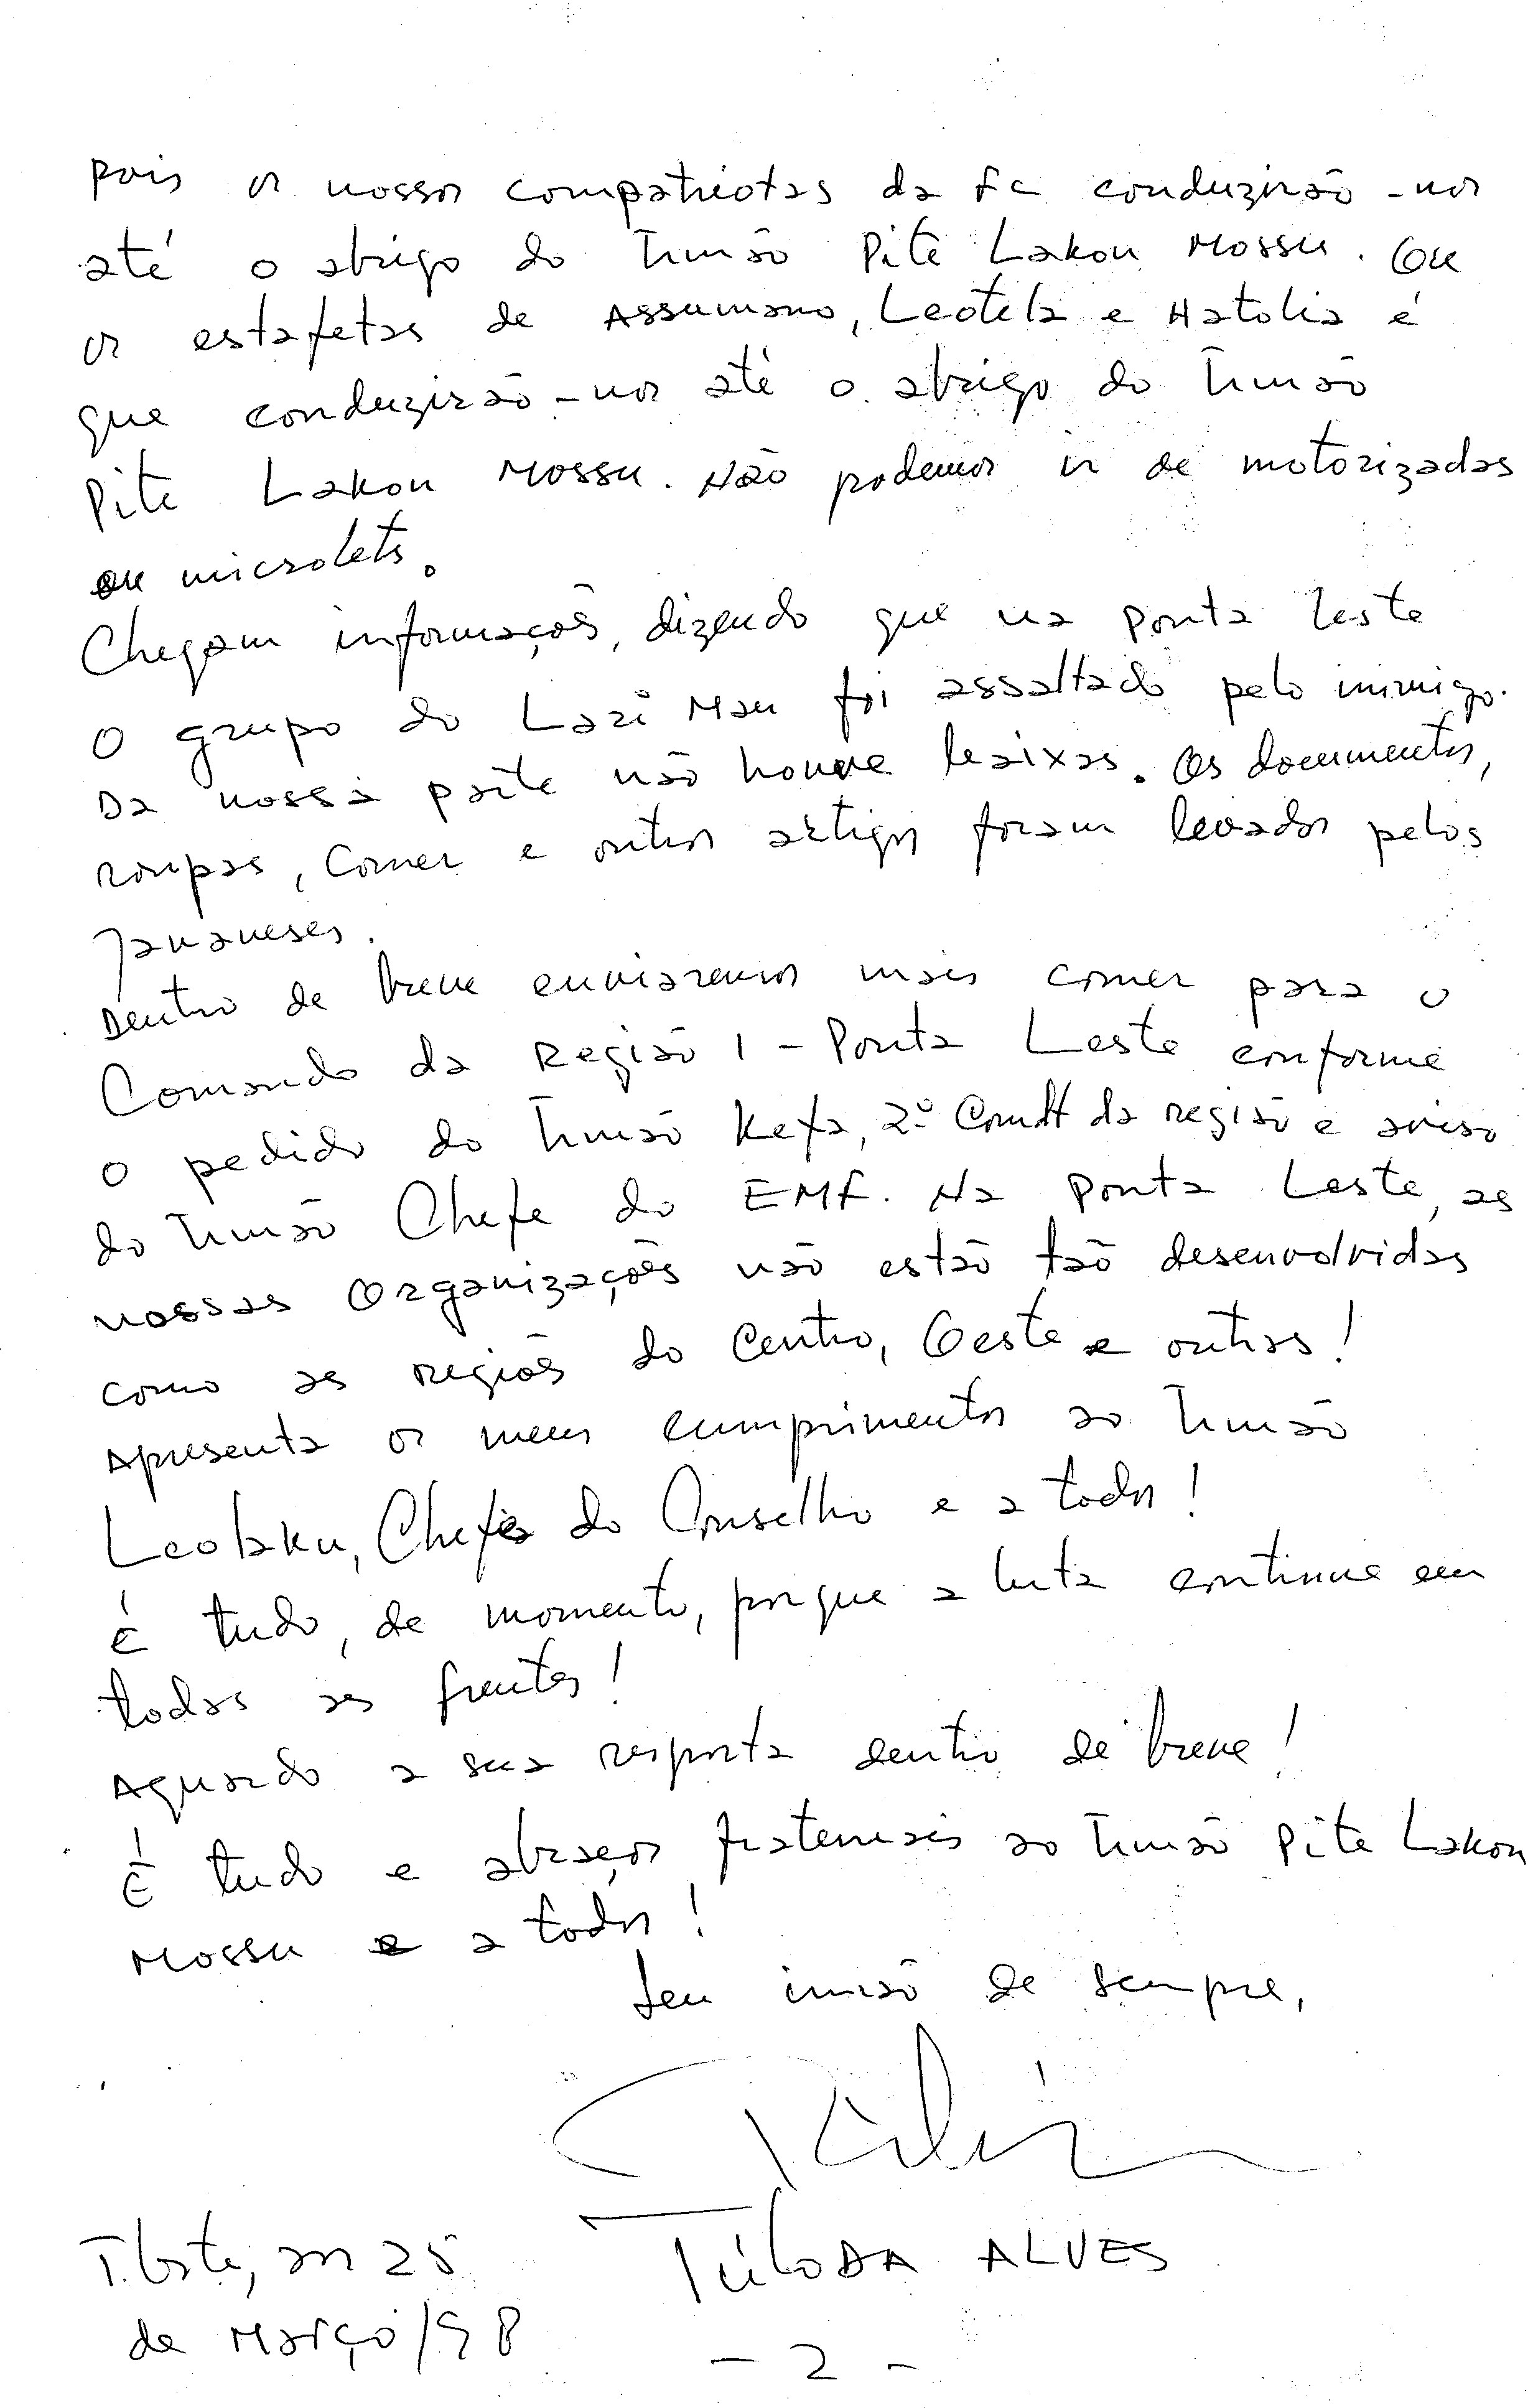 pois os nossos compatriotas da FC conduzirão-nos
até o abrigo do Irmão Pite Lakon Mossu. Ou
os estafetas de Assumano, Leotela e Natolia é
que conduzirão-nos até o abrigo do Irmão
Pite Lakon Mossu. Não podemos ir de motorizadas
ou microlets.
Chegam informações, dizendo que na Ponta Leste
o grupo do Lari Mau foi assaltado pelo inimigo.
Da nossa parte não houve baixas. Os documentos,
roupas, comer e outros artigos foram levados pelos
javaneses.
Dentro de breve enviaremos mais comer para o
Comando da Região 1 - Ponta Leste conforme
o pedido do Irmão Kefa, 2º Cmdt da região e aviso
do Irmão Chefe do EMF. Na Ponta Leste, as
nossas Organizações não estão tão desenvolvidas
como as regiões do Centro, Oeste e outras!
Apresenta os meus cumprimentos ao Irmão
Leolaku, Chefe do Conselho e a todos!
É tudo, de momento, porque a luta continua em
todas as frentes!
Aguardo a sua resposta dentro de breve!
É tudo e abraços fraternais ao Irmão Pite Lakon
Mossu e a todos!
Seu irmão de sempre,
T. Leste, aos 25
ALVES
de Março/98
- 2 -